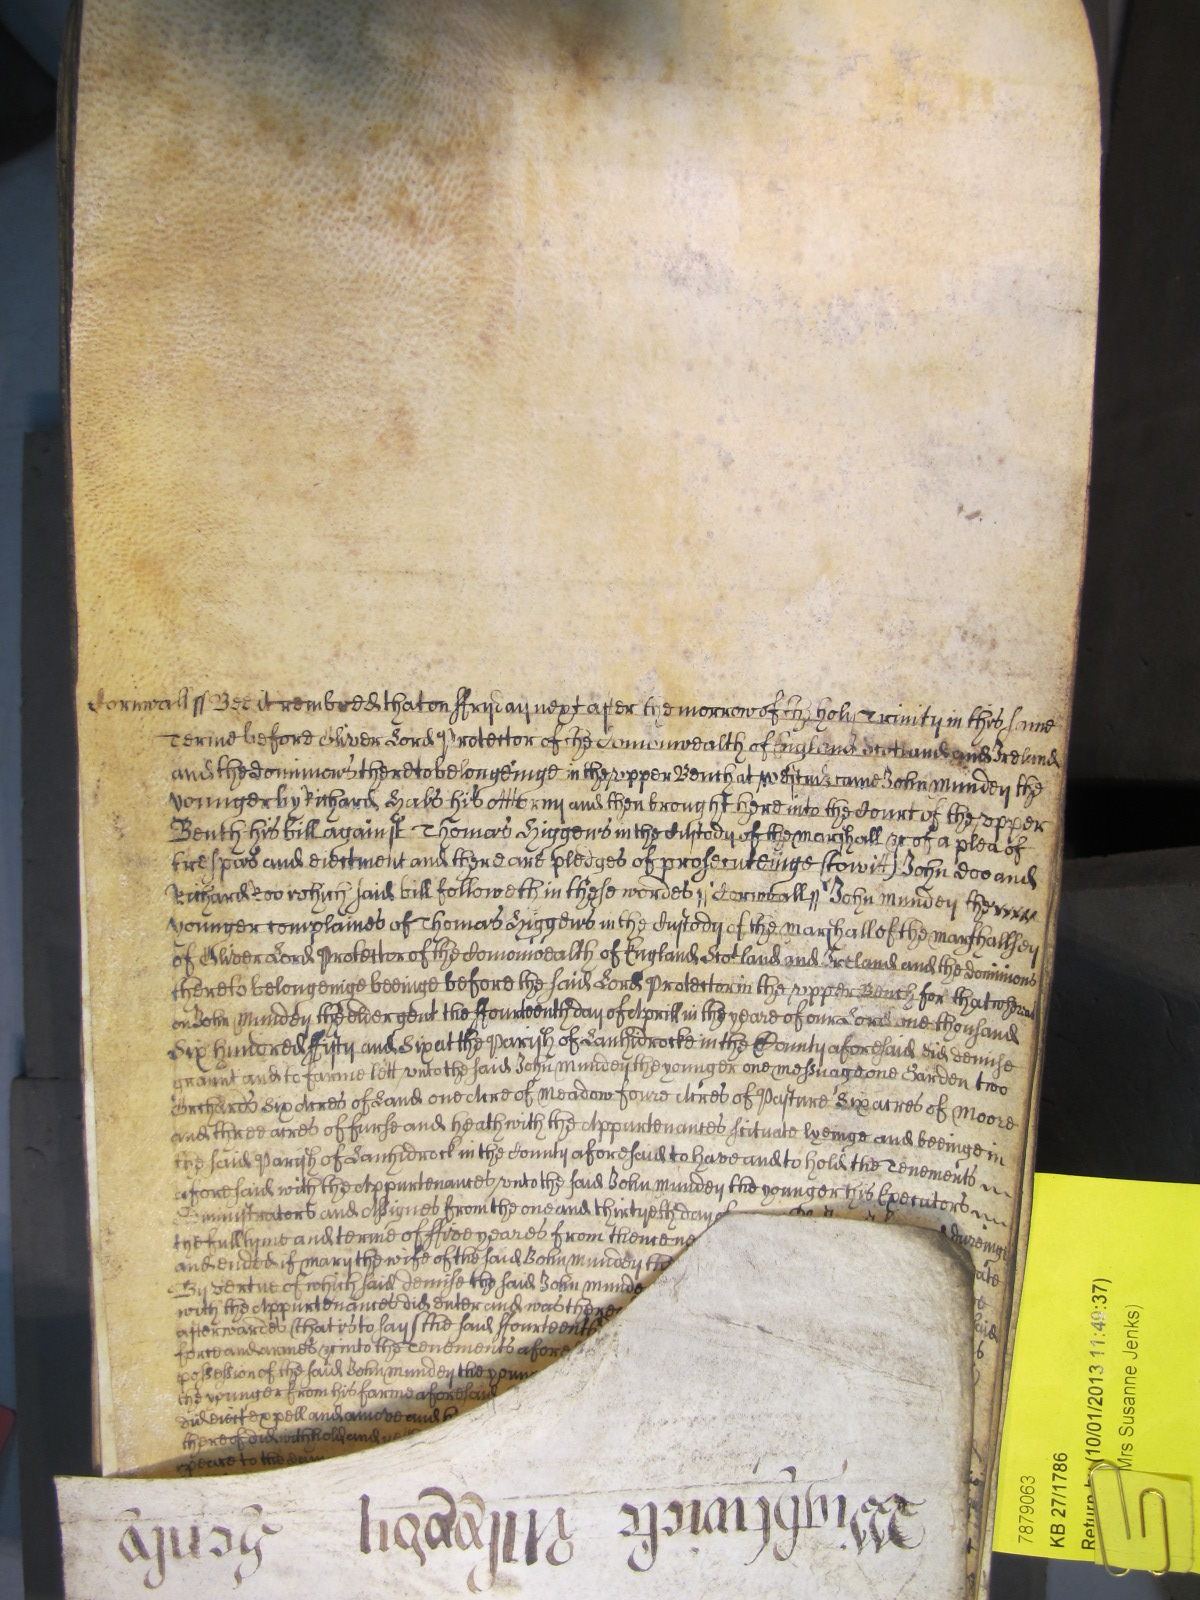 Cornwall ss Bee it remembred that on ffryday next after the morrow of the holy Trinity in this same
Terme before Oliver Lord Protector of the Comonwealth of England Scotland and Ireland
and the dominions thereto belongeinge in the upper Bench at westmr came John Mundey the
younger by Richard Hals his Attorny and then brought here into the Court of the upper
Bench his bill against Thomas Higgens in the Custody of the marshall &c of a plea of
trespas and eiectment and there are pledges of prosecuteinge (to witt) John doo and
Richard Roo which said bill followeth in these wordes ss Cornwall ss John Mundey the
younger complaines of Thomas Higgens in the Custody of the marshall of the marshallsey
of Oliver Lord Protector of the Comonwealth of England Scotland and Ireland and the dominions
thereto belongeinge beeinge before the said Lord Protector in the upper Bench for that whereas
on John Mundey the elder gent the ffourteenth day of Aprill in the yeare of our Lord one thousand
Six hundred ffifty and Six at the Parish of Lanhidrocke in the County aforesaid did demise
graunt and to farme lett unto the said John Mundey the younger one messuage one Garden two
Orchards Six Acres of Land one Acre of Meadow foure Acres of Pasture Six acres of Moore
and three acres of furse and heath with the Appurtenances scituate lyeinge and beeinge in
the said Parish of Lanhidrock in the County aforesaid to have and to hold the Tenements
aforesaid with the Appurtenances unto the said John Mundey the younger his Executors
Administrators and Assignes from the one and thirtyeth day of
the full tyme and terme of ffive yeares from thence ne dureinge
and ended if mary the wife of the said John Mundey the
By vertue of which said demise the said John Munde
with the Appurtenances did enter and was there
afterwardes (that is to say) the said ffourteenth
force and armes &c into the Tenements afore
possession of the said John Mundey the youn
the younger from his farme aforesaid
did eiect expell and amove and
thereof did withhold and
yeare to the
Wightwick Henly
7879063
KB 27/1786
Return by (10/01/2013 11:49:37)
Mrs Susanne Jenks)